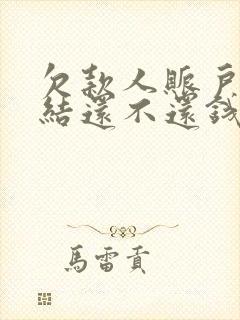 欠款人賬戶
結還不還錢
馬雷貢